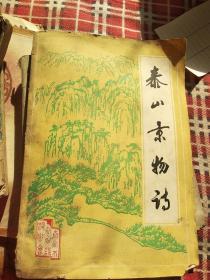 泰山景物诗